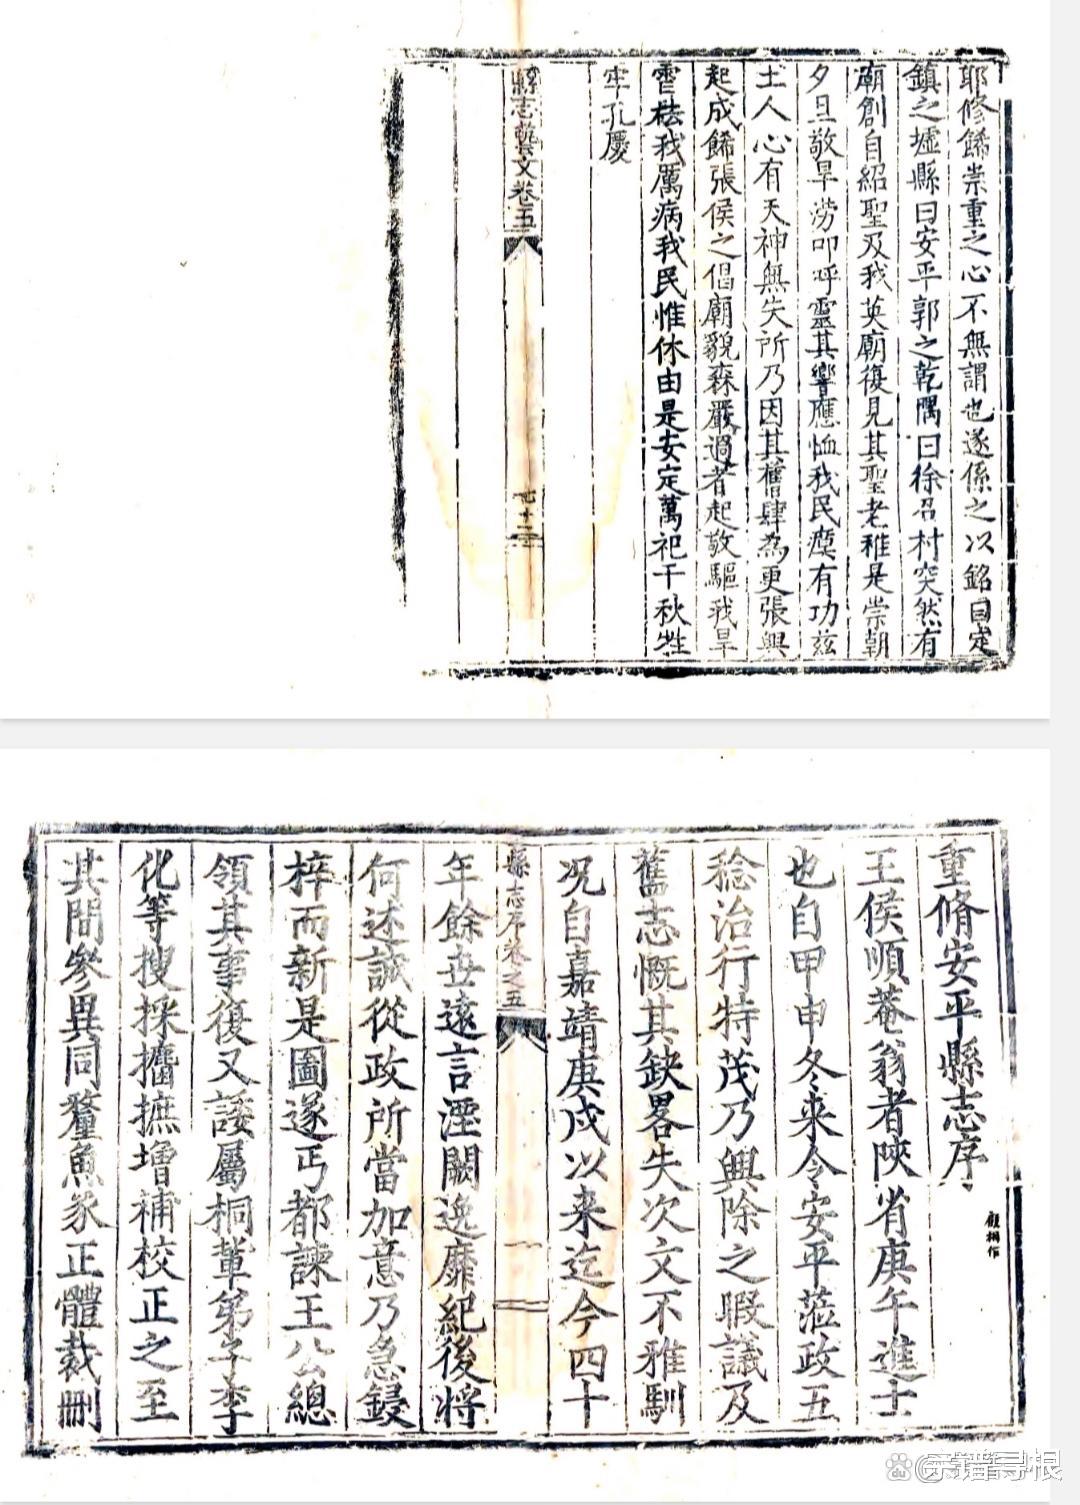 耶修餙崇重之心不無謂也遂係之以銘曰定
鎮之墟縣曰安平郭之乾隅曰徐召村突然有
廟創自紹聖及我英廟復見其聖老稚是崇朝
夕旦敬旱澇叩呼靈其響應恤我民瘼有功兹
土人心有天神無失所乃因其舊肆為更張興
起成餙張侯之倡廟貌森嚴過者起敬驅我旱
雹祛我厲病我民惟休由是安定萬祀千秋牲
牢孔慶
縣志藝文卷五
七十二
重脩安平縣志序
顧桐作
王侯順菴翁者陝省庚午進士
也自甲申冬来令安平蒞政五
稔治行特茂乃興除之暇議及
舊志慨其缺畧失次文不雅馴
况自嘉靖庚戌以来迄今四十
縣志序卷之五
一
年餘世遠言湮闕逸靡紀後将
何述誠從政所當加意乃急鋟
梓而新是圖遂丐都諫王公總
領其事復又諉屬桐軰弟子李
化等搜採攟摭增補校正之至
其間叅異同釐魚豕正體裁刪